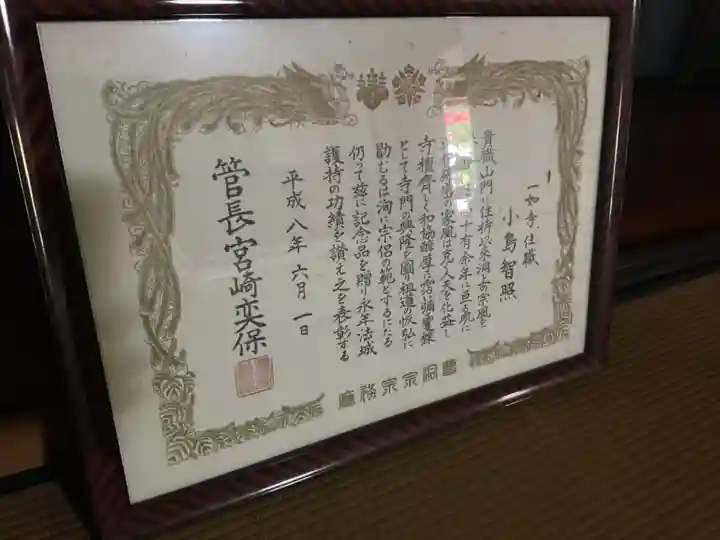 一如寺住職
小島智照
貴職山門に住持以来洞上の宗風を
四十有余年に亘る夙に
家風は克く人天を化益し
寺檀齊しく和協醇厚に
として寺門の興隆を図り祖道の恢弘に
勖むるは洵に宗侶の範とするにたる
仍って茲に記念品を贈り永年法城
護持の功績を讃え之を表彰する
平成八年六月一日
管長宮崎奕保
曹洞宗宗務庁